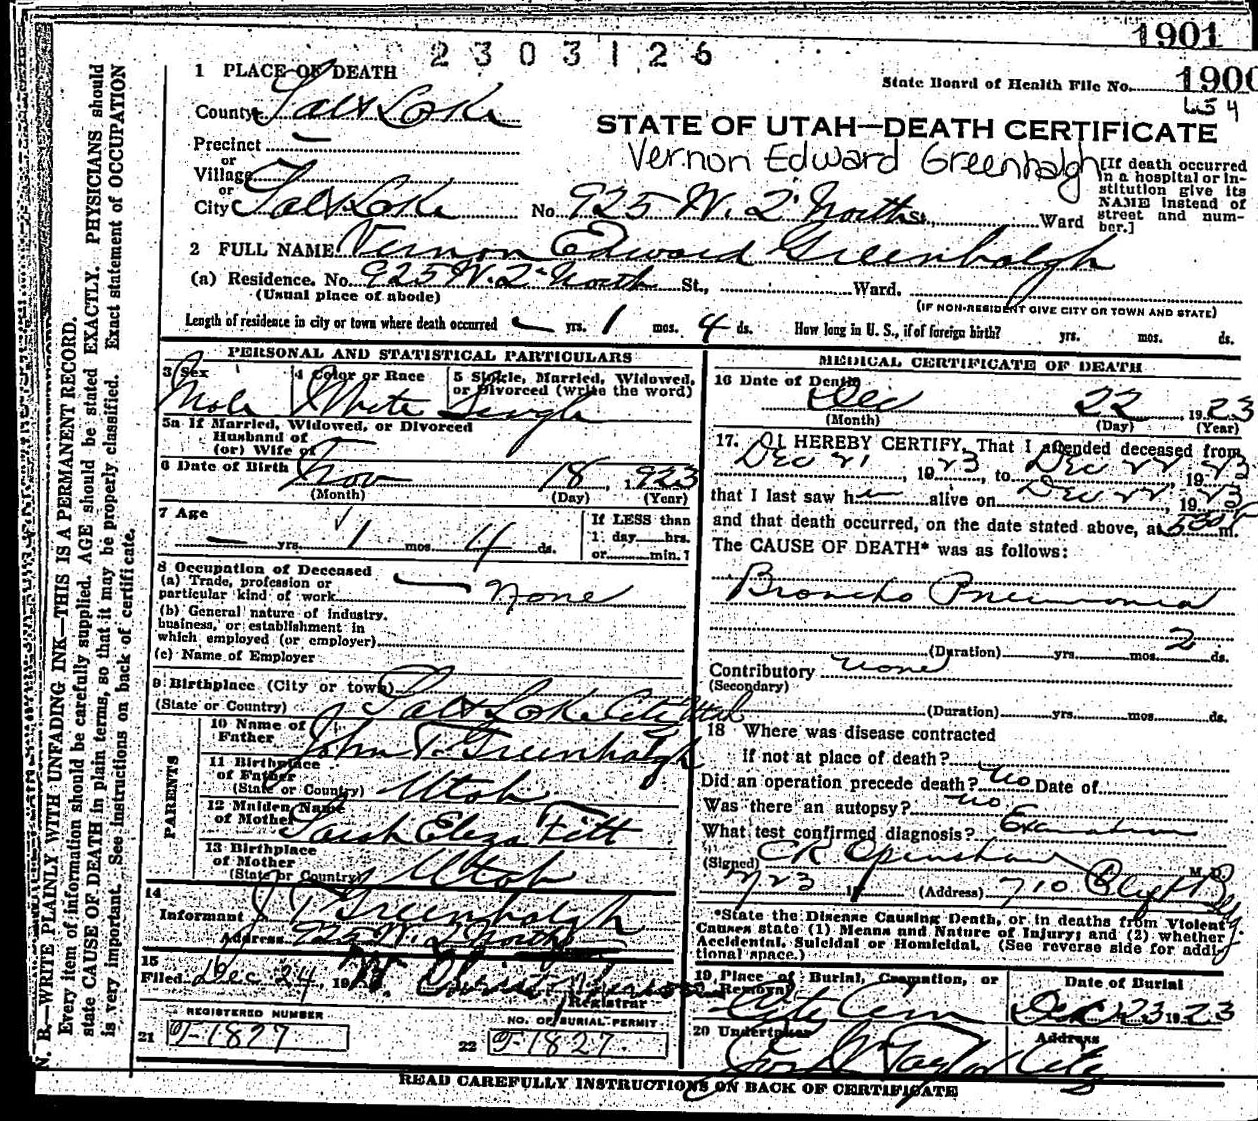 1901
2303126
1 PLACE OF DEATH
State Board of Health File No. 1900
County Salt Lake
STATE OF UTAH—DEATH CERTIFICATE
Precinct
Vernon Edward Greenhalgh
or
Village
or
City Salt Lake No. 925 W. 2 North St., Ward
[If death occurred in a hospital or institution give its NAME instead of street and number.]
2 FULL NAME Vernon Edward Greenhalgh
(a) Residence. No. 925 W. 2 North St., Ward.
(Usual place of abode)
(IF NON-RESIDENT GIVE CITY OR TOWN AND STATE)
Length of residence in city or town where death occurred — yrs. 1 mos. 4 ds. How long in U. S., if of foreign birth? yrs. mos. ds.
PERSONAL AND STATISTICAL PARTICULARS
3 Sex 4 Color or Race 5 Single, Married, Widowed,
or Divorced (write the word)
Male White Single
5a If Married, Widowed, or Divorced
Husband of
(or) Wife of
6 Date of Birth Nov 18, 1923
(Month) (Day) (Year)
7 Age
— yrs. 1 mos. 4 ds.
If LESS than
1 day hrs.
or min.?
8 Occupation of Deceased
(a) Trade, profession or
particular kind of work — None
(b) General nature of industry.
business, or establishment in
which employed (or employer)
(c) Name of Employer
9 Birthplace (City or town)
(State or Country) Salt Lake City Utah
PARENTS
10 Name of
Father John T. Greenhalgh
11 Birthplace
of Father
(State or Country) Utah
12 Maiden Name
of Mother Sarah Eliza Fitt
13 Birthplace
of Mother
(State or Country) Utah
14
Informant J T Greenhalgh
Address 925 W. 2 North
15
Filed Dec 24, 19
Registrar
REGISTERED NUMBER
21 T-1827
NO. OF BURIAL PERMIT
22 T-1827
MEDICAL CERTIFICATE OF DEATH
16 Date of Death
Dec 22 1923
(Month) (Day) (Year)
17. I HEREBY CERTIFY, That I attended deceased from
Dec 21, 1923, to Dec 22, 1923
that I last saw him alive on Dec 22, 1923
and that death occurred, on the date stated above, at 530 P m.
The CAUSE OF DEATH* was as follows:
Broncho Pneumonia
(Duration) yrs. mos. 2 ds.
Contributory none
(Secondary)
(Duration) yrs. mos. ds.
18 Where was disease contracted
if not at place of death?
Did an operation precede death? no Date of
Was there an autopsy? no
What test confirmed diagnosis? Examination
(Signed) CR Openshaw M. D.
(Address) 710
*State the Disease Causing Death, or in deaths from Violent
Causes state (1) Means and Nature of Injury; and (2) whether
Accidental, Suicidal or Homicidal. (See reverse side for additional space.)
19 Place of Burial, Cremation, or
Removal City Cem
Date of Burial
Dec 23 1923
20 Undertaker
Jos W Taylor
Address
City
READ CAREFULLY INSTRUCTIONS ON BACK OF CERTIFICATE
N. B.—WRITE PLAINLY WITH UNFADING INK—THIS IS A PERMANENT RECORD.
Every item of information should be carefully supplied. AGE should be stated EXACTLY. PHYSICIANS should
state CAUSE OF DEATH in plain terms, so that it may be properly classified. Exact statement of OCCUPATION
is very important. See instructions on back of certificate.